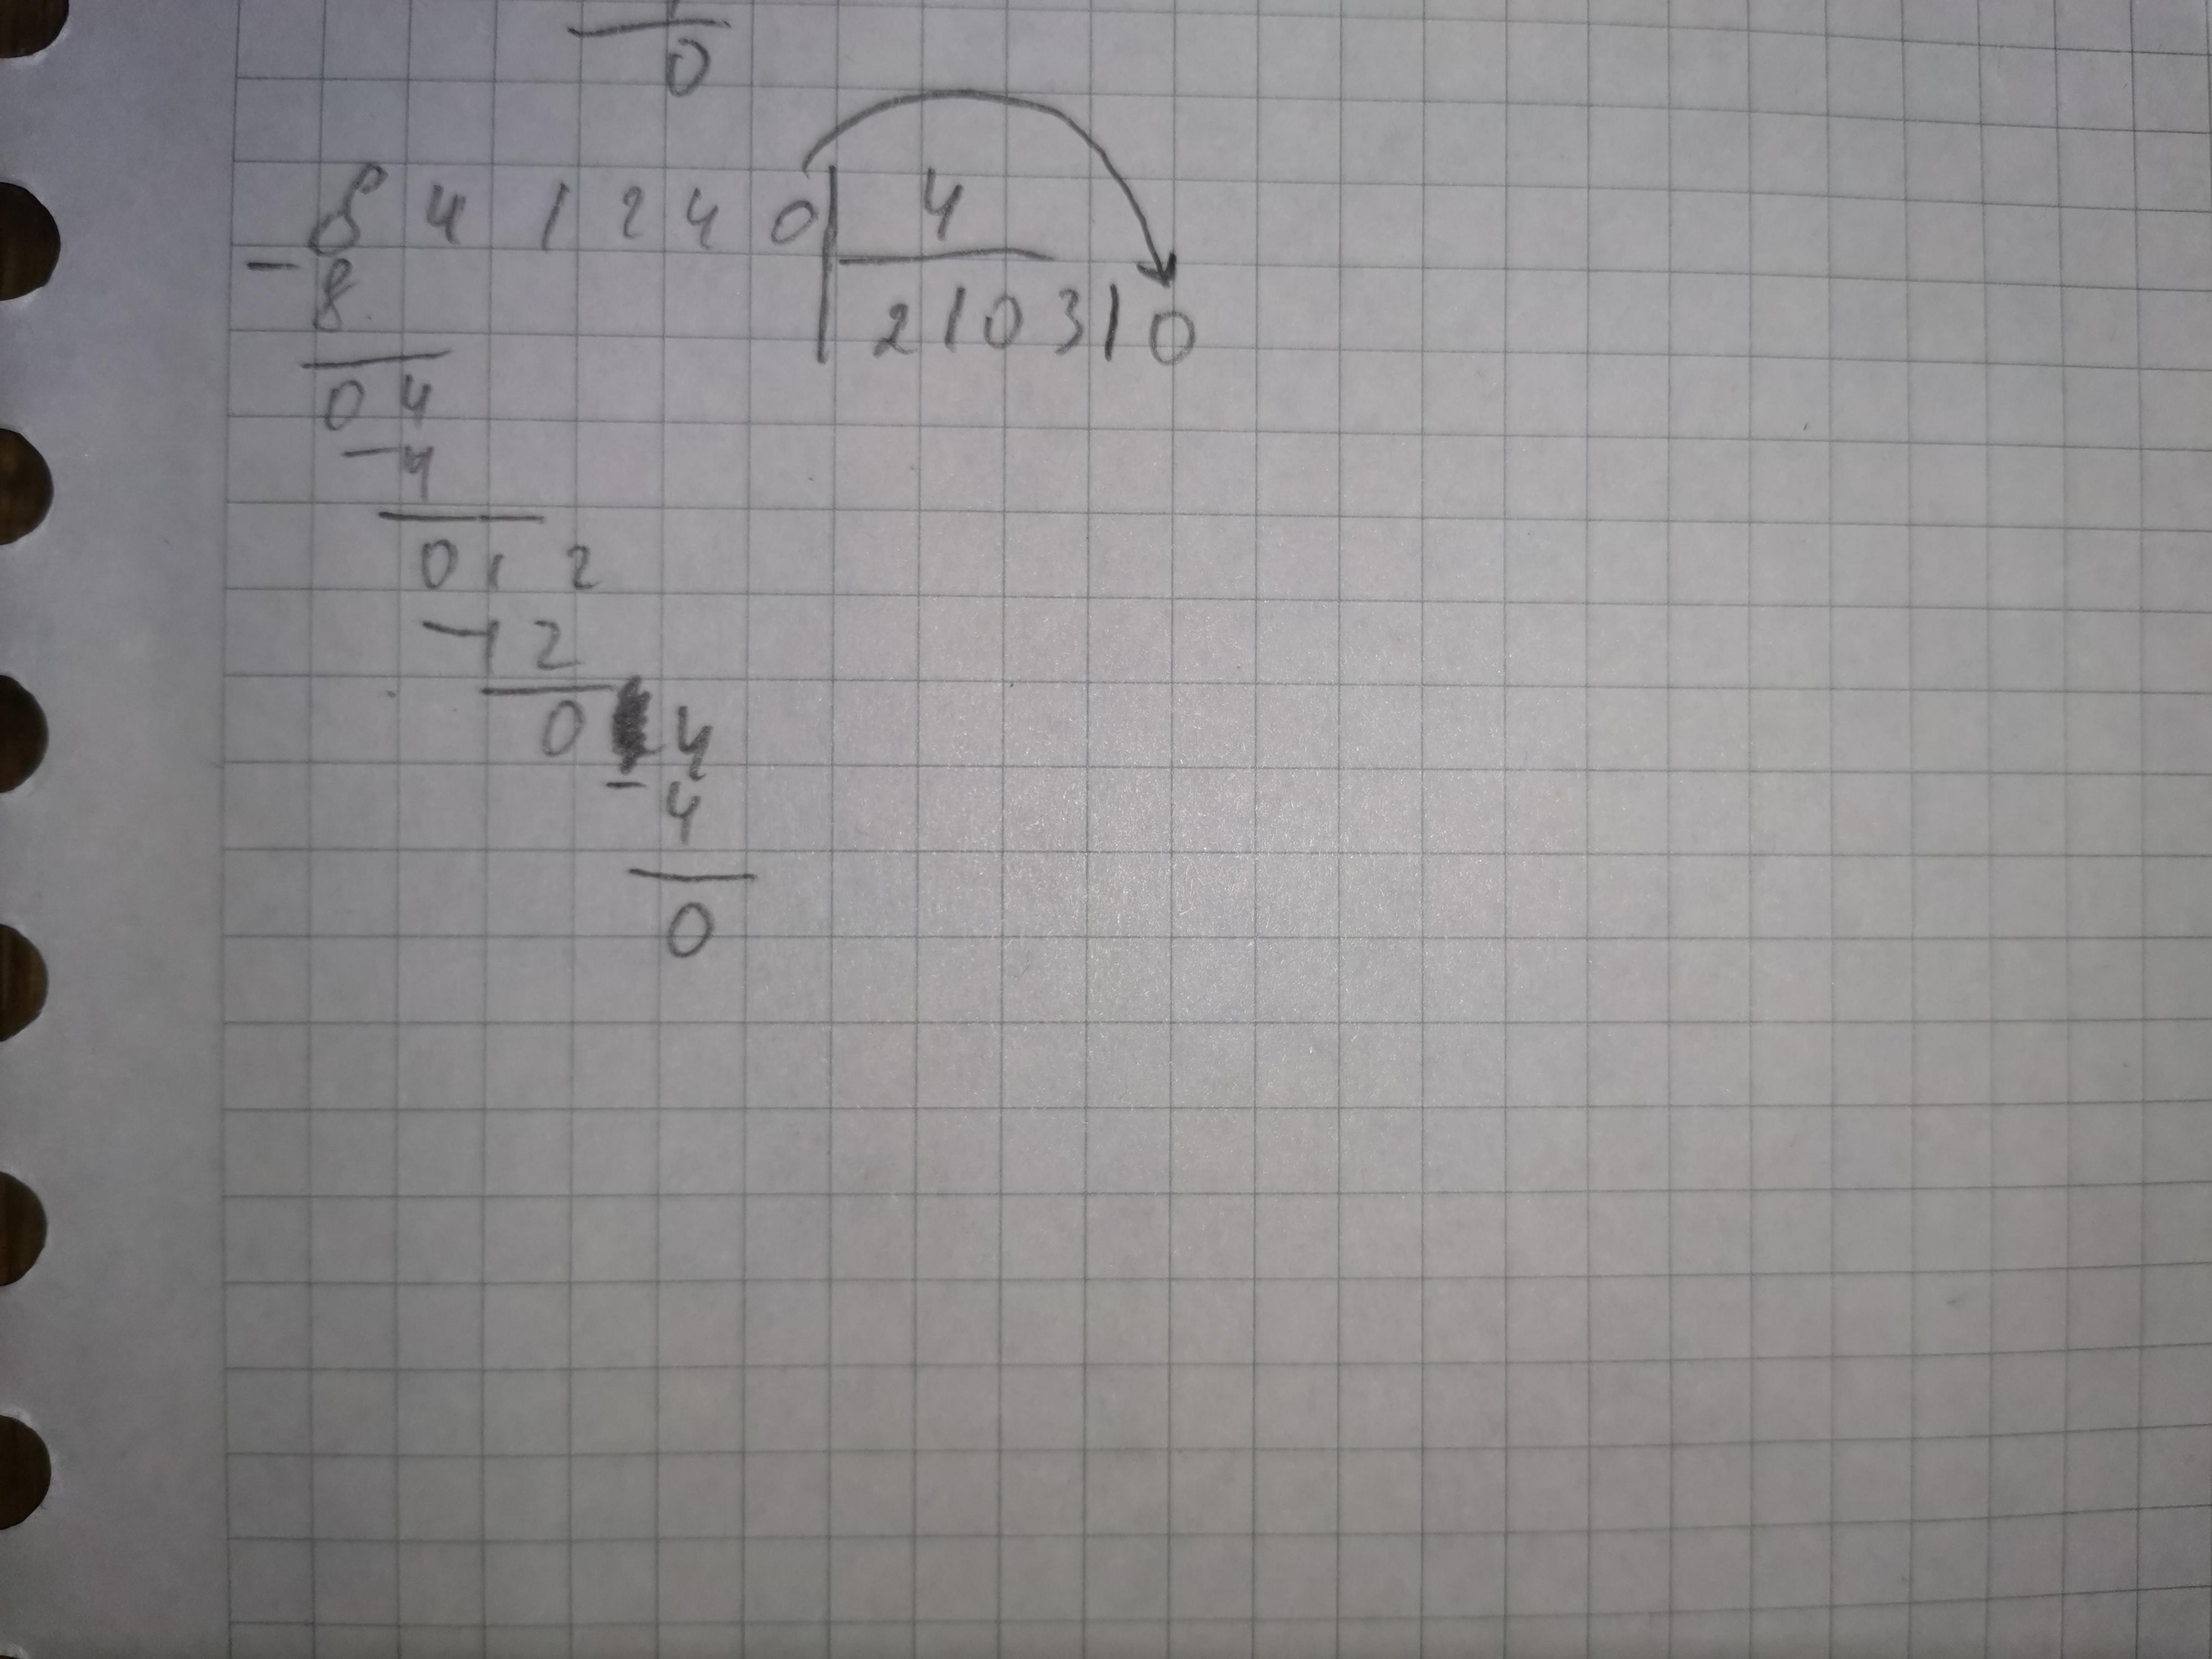 0
841240 4
- 8 210310
04
-4
012
-12
0 4
- 4
0